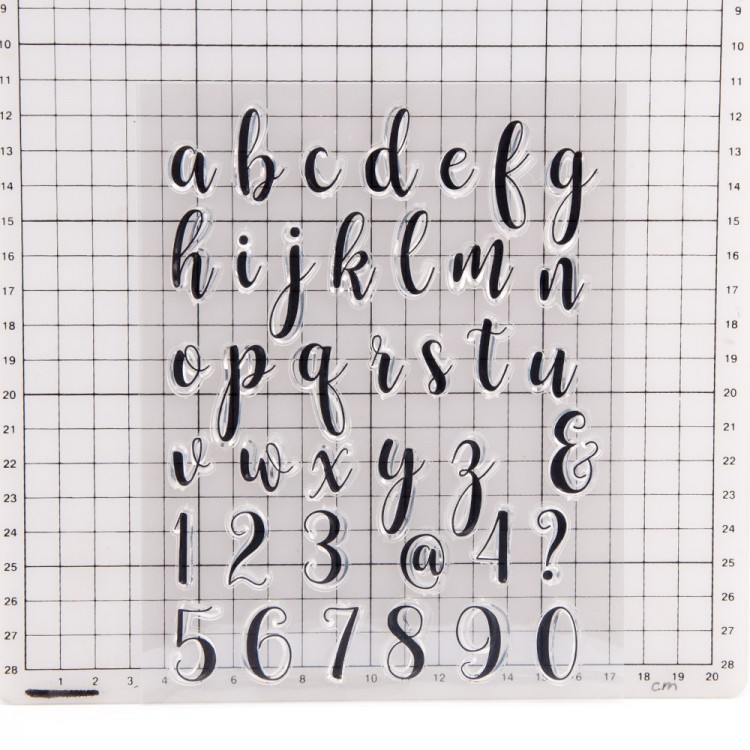 9 9
10 10
11 11
12 12
13 a b c d e f g 13
14 14
15 15
16 h i j k l m n 16
17 17
18 18
19 o p q r s t u 19
20 20
21 21
22 v w x y z & 22
23 23
24 1 2 3 @ 4 ? 24
25 25
26 26
27 5 6 7 8 9 0 27
28 28
1 2 3 4 6 8 10 12 14 15 16 18 19 20
cm